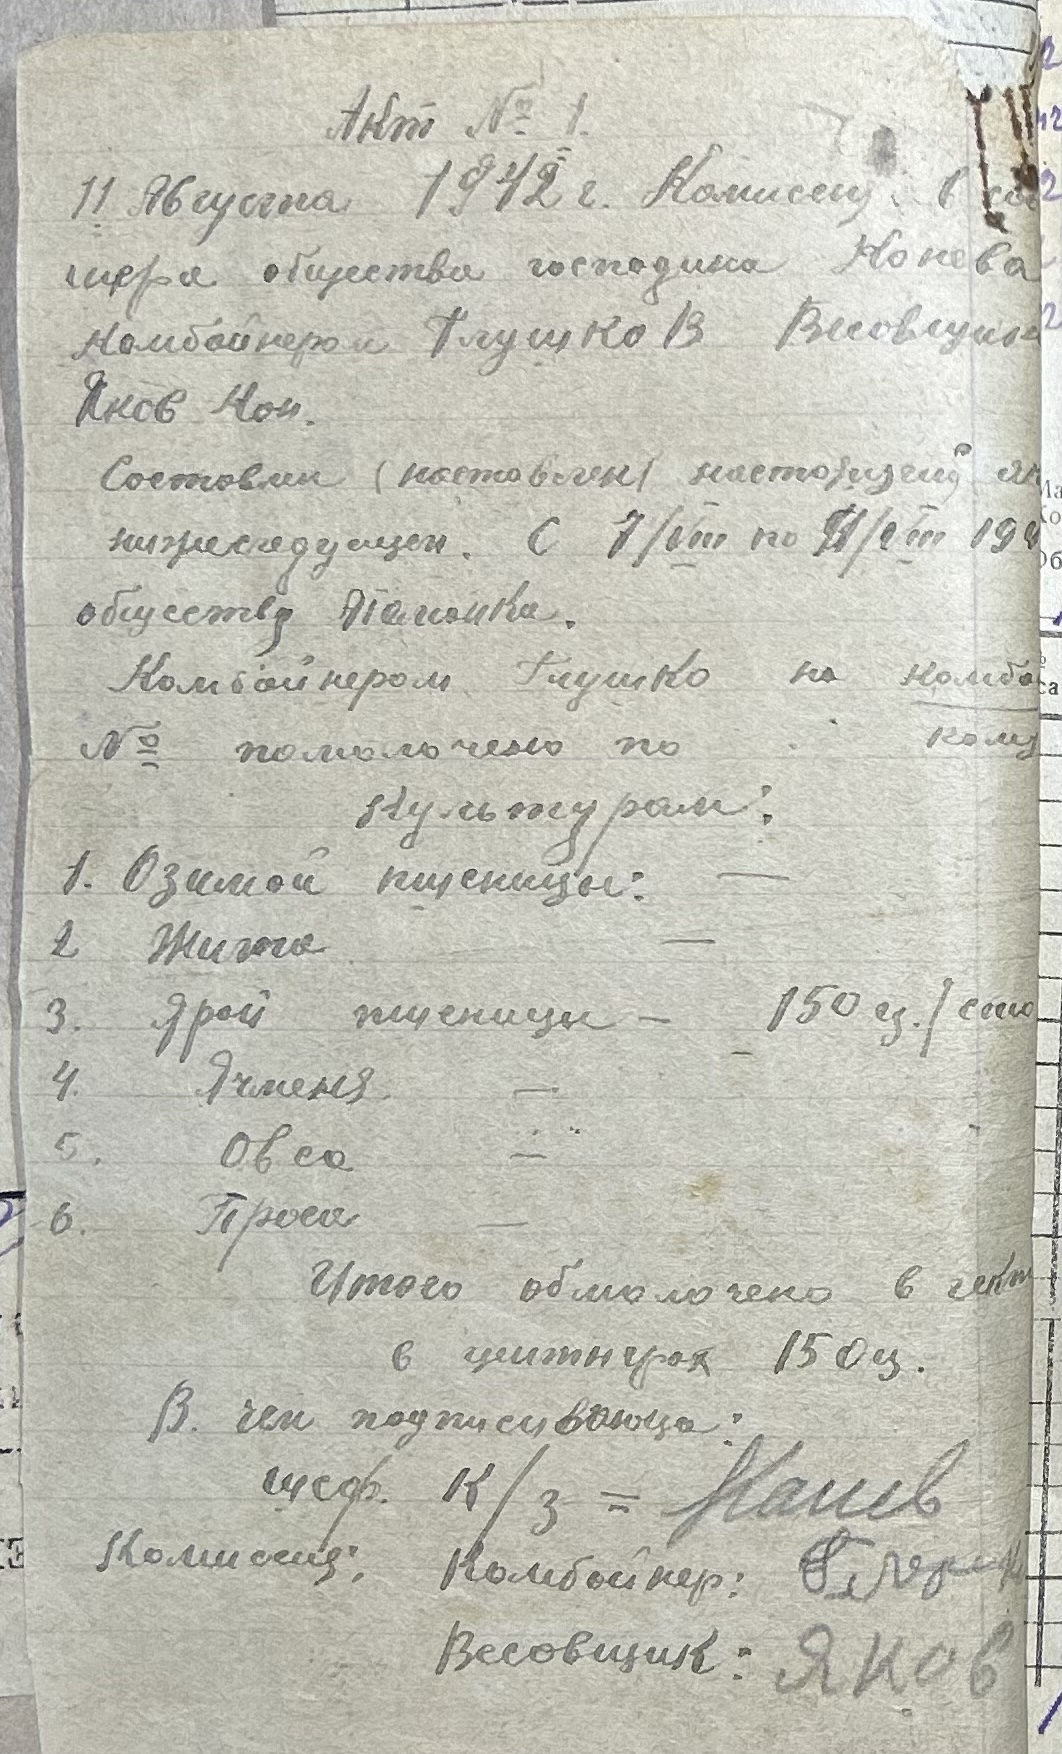 Акт № 1.
11 Августа 1942 г. Комиссия в со
шефа общества господина Конева
комбайнером Глушко В Весовщик
Яков Кон.
Составли (поставлен) настоящей ак
нижеследующем. С 7/VIII по 11/VIII 194
общества
Комбайнером Глушко на комба
№ помолочено по
культурам:
1. Озимой пшеницы: —
2 Жита —
3. Ярой пшеницы — 150 ц. / сто
4. Ячменя —
5. Овса —
6. Проса —
Итого обмолочено в гект
в центнерах 150 ц.
В. чем подписываюца:
шеф. К/З =
Комиссия: Комбайнер:
Весовщик: Яков